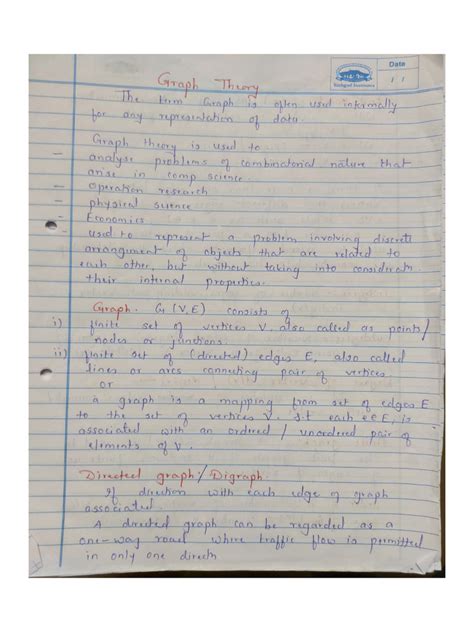 Date
/ /
Graph Theory
The term Graph is often used informally
for any representation of data
Graph theory is used to
- analyse problems of combinatorial nature that
arise in comp science
- operation research
- physical science
- Economics
used to represent a problem involving discrete
arrangument of objects that are related to
each other, but without taking into consideratn
their internal properties.
Graph. G (V, E) consists of
i) finite set of vertices V. also called as points/
nodes or junctions.
ii) finite set of (directed) edges E, also called
lines or arcs connecting pair of vertices
or
a graph is a mapping from set of edges E
to the set of vertices V. s.t each e∈E, is
associated with an ordered / unordered pair of
elements of V.
Directed graph / Digraph.
If direction with each edge of graph
associated.
A directed graph can be regarded as a
one-way road where traffic flow is permitted
in only one directn